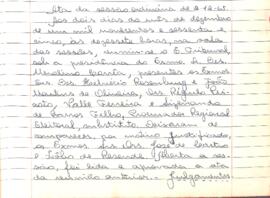 Ata da sessão ordinária de 2-12-65.
Aos dois dias do mês de dezembro
de um mil novecentos e sessenta e
cinco, às dezessete horas, na sala
das sessões, reuniu-se o E. Tribunal,
sob a presidência do Exmo Sr. Des.
presentes os Exmos
Srs. Des.
Martins de Oliveira, Drs.
Valle Ferreira e
de Barros Filho, Procurador Regional
Eleitoral, substituto. Deixaram de
comparecer, por motivo justificado,
os Exmos. Srs. Drs. José de Castro
e de Resende. Aberta a ses-
são, foi lida e aprovada a ata
da reunião anterior. Julgamentos